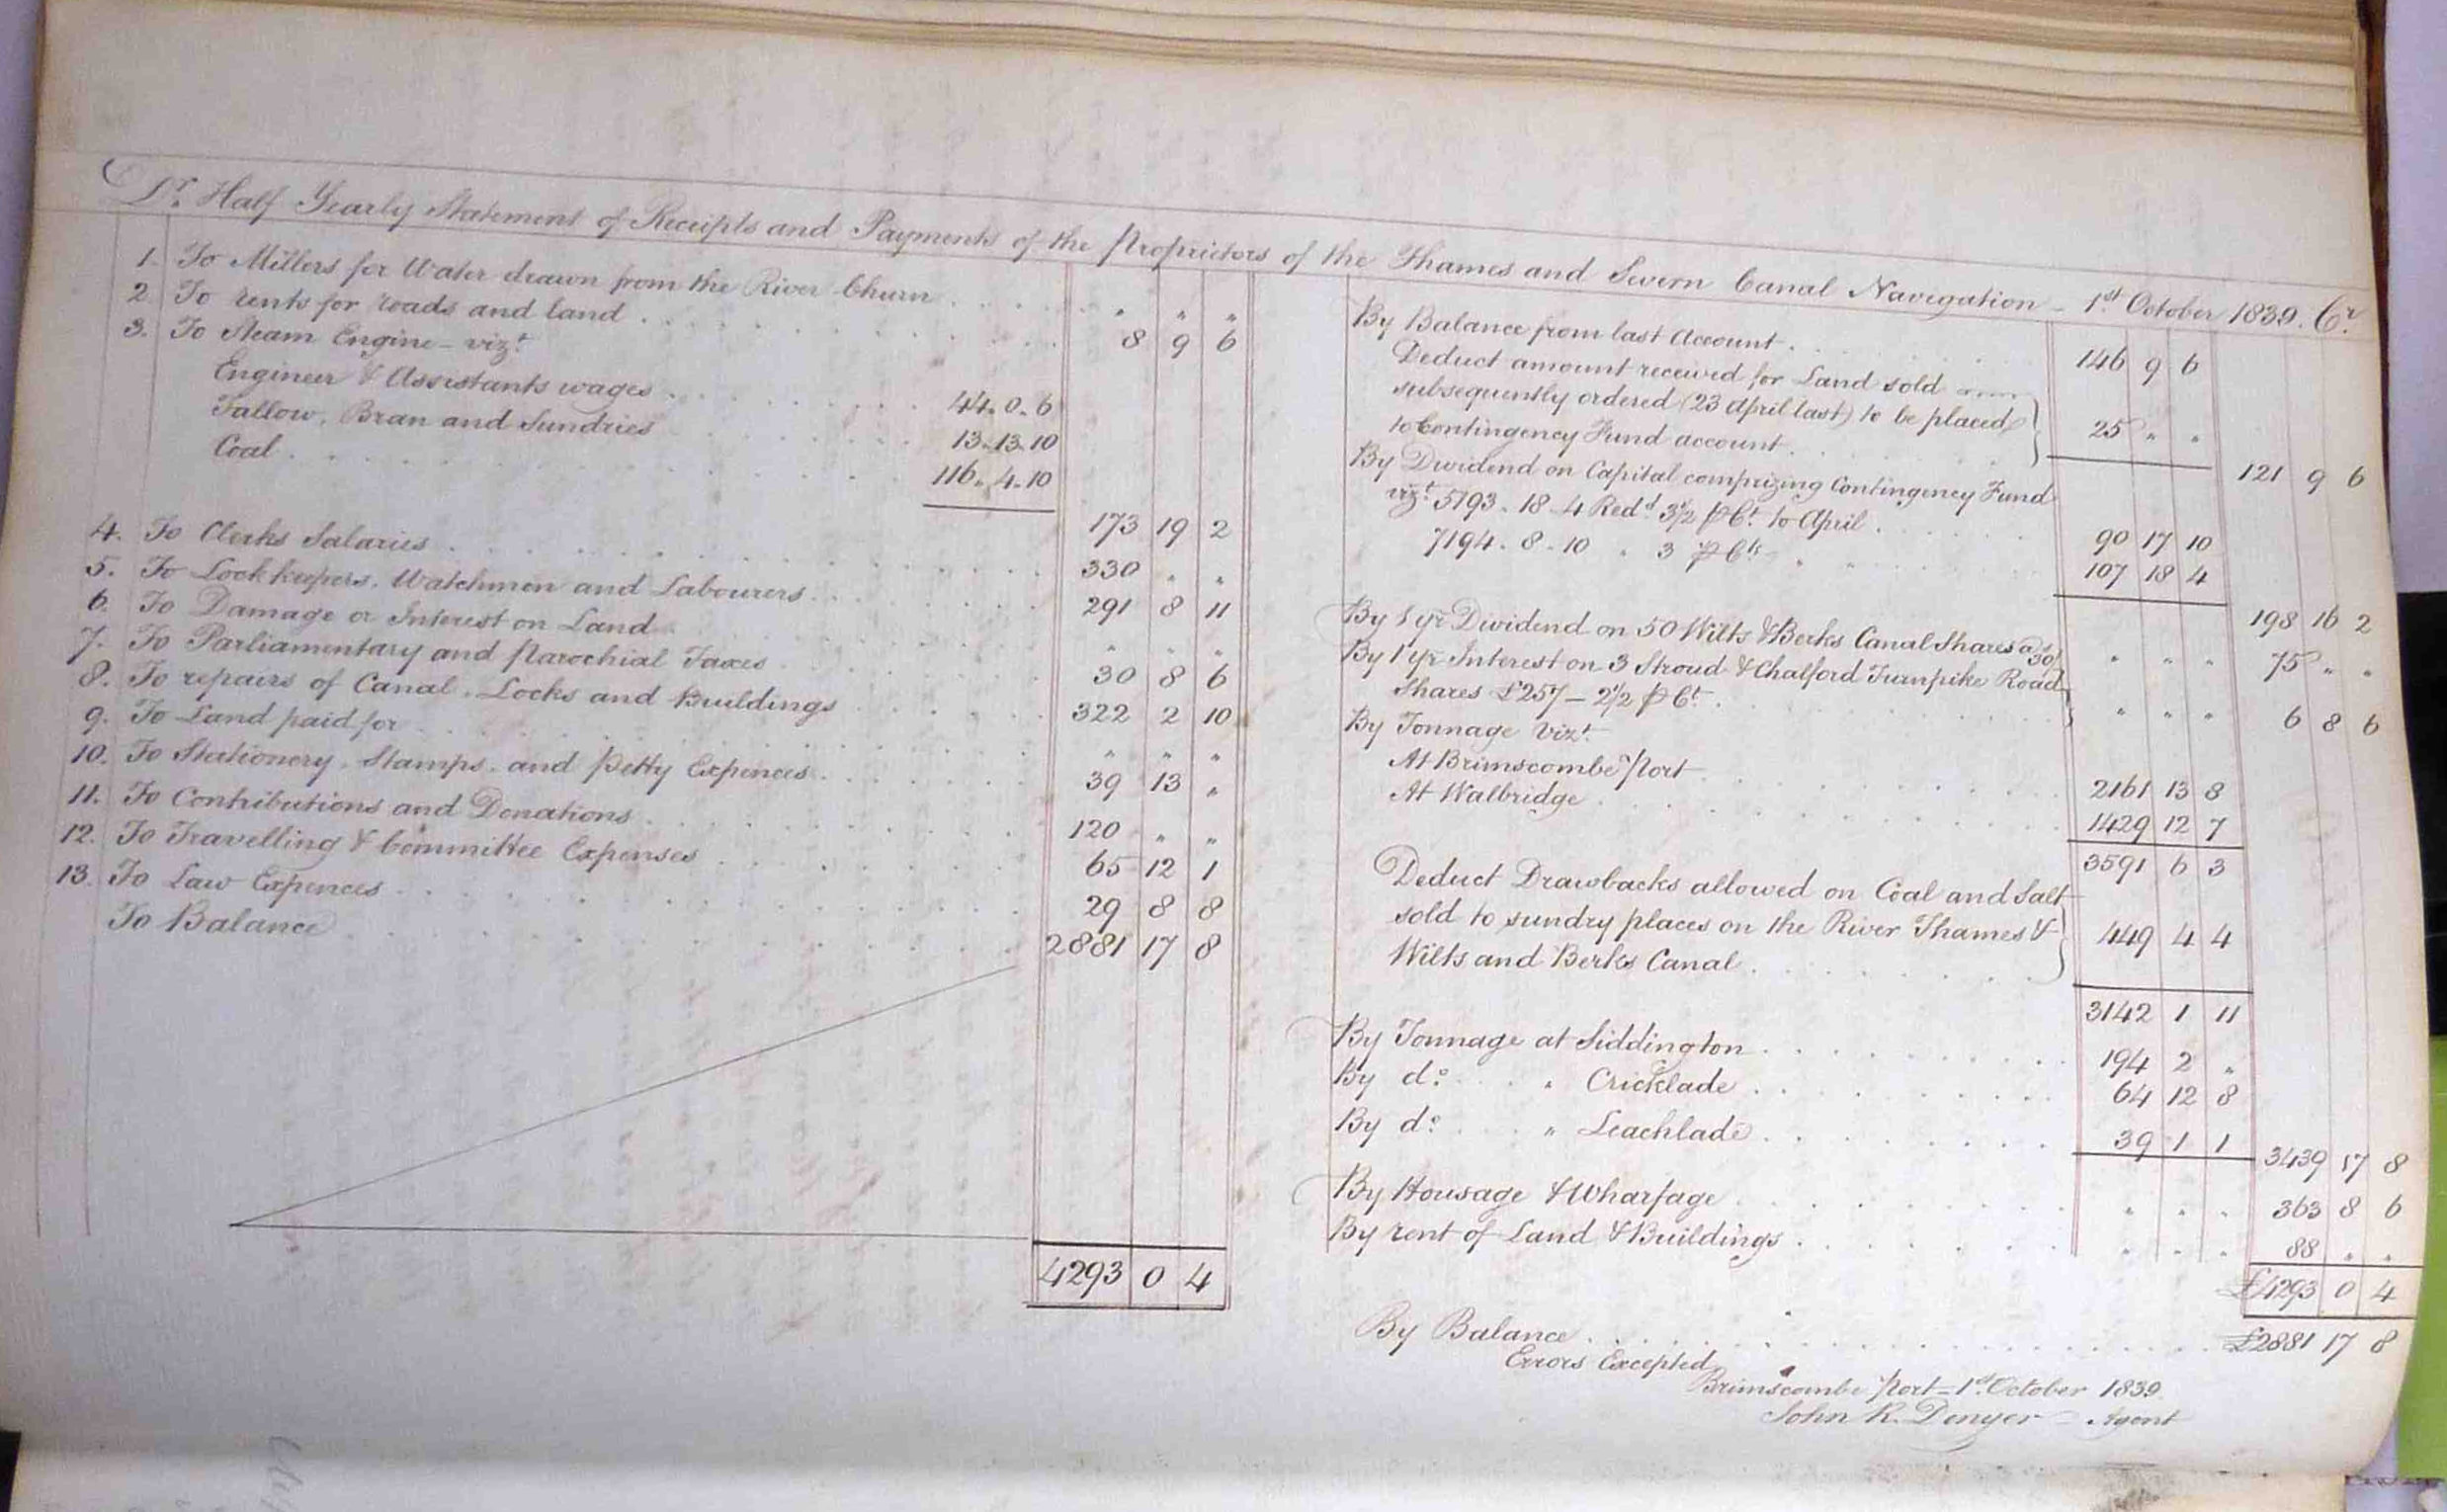 Dr. Half Yearly Statement of Receipts and Payments of the Proprietors of the Thames and Severn Canal Navigation - 1st October 1839. Cr.
1. To Millers for Water drawn from the River Churn . . . " " "
2 To rents for roads and land . . . 8 9 6
3. To Steam Engine - vizt
Engineer & Assistants wages . . . 44. 0. 6
Tallow, Bran and Sundries . . . 13. 13. 10
Coal . . . 116. 4. 10
173 19 2
4. To Clerks Salaries . . . 330 " "
5. To Lock keepers, Watchmen and Labourers . . . 291 8 11
6. To Damage or Interest on Land . . . " " "
7. To Parliamentary and Parochial Taxes . . . 30 8 6
8. To repairs of Canal, Locks and Buildings . . . 322 2 10
9. To Land paid for . . . " " "
10. To Stationery, Stamps, and Petty Expences . . . 39 13 "
11. To Contributions and Donations . . . 120 " "
12. To Travelling & Committee Expenses . . . 65 12 1
13. To Law Expences . . . 29 8 8
To Balance . . . 2881 17 8
4293 0 4
By Balance from last Account . . . 146 9 6
Deduct amount received for Land sold
subsequently ordered (23 April last) to be placed
to Contingency Fund account . . . 25 " "
121 9 6
By Dividend on Capital comprizing Contingency Fund
vizt 5193. 18. 4 Redd 3½ P Ct. to April . . . 90 17 10
7194. 8. 10 " 3 P Cts . . . 107 18 4
198 16 2
By 1 yrs Dividend on 50 Wilts & Berks Canal Shares @ 30/ " " " 75 " "
By 1 yrs Interest on 3 Stroud & Chalford Turnpike Road
Shares £257 - 2½ P Ct. . . . " " " 6 8 6
By Tonnage vizt.
At Brimscombe Port . . . 2161 13 8
At Walbridge . . . 1429 12 7
3591 6 3
Deduct Drawbacks allowed on Coal and Salt
sold to sundry places on the River Thames &
Wilts and Berks Canal . . . 449 4 4
3142 1 11
By Tonnage at Siddington . . . 194 2 "
By do. " Cricklade . . . 64 12 8
By do. " Leachlade . . . 39 1 1
3439 17 8
By Housage & Wharfage . . . " " " 363 8 6
By rent of Land & Buildings . . . " " " 88 " "
£4293 0 4
By Balance . . . £2881 17 8
Errors Excepted
Brimscombe Port - 1st October 1839
John R. Denyer - Agent